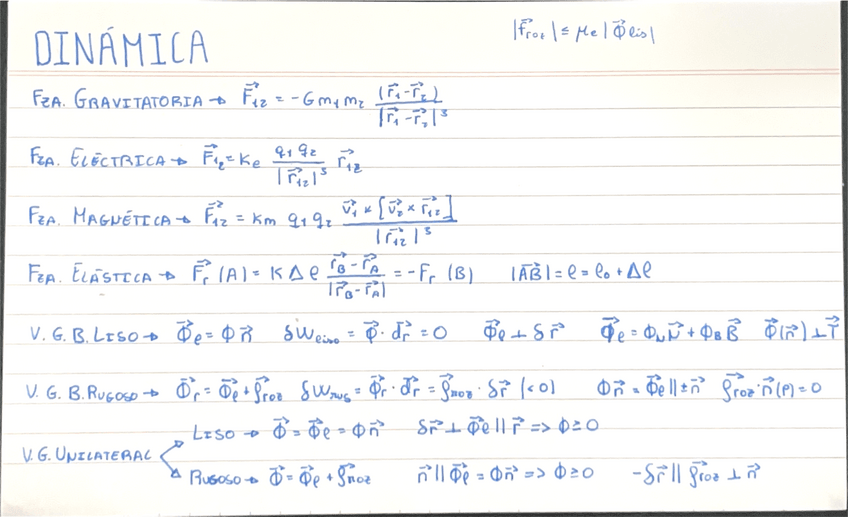 |f⃗roz| ≤ μe |Φ⃗lis|
DINÁMICA
FZA. GRAVITATORIA → F⃗12 = -G m1 m2 (r⃗1 - r⃗2) / |r⃗1 - r⃗2|³
FZA. ELÉCTRICA → F⃗12 = Ke q1 q2 / |r⃗12|³ r⃗12
FZA. MAGNÉTICA → F⃗12 = Km q1 q2 v⃗1 × [v⃗2 × r⃗12] / |r⃗12|³
FZA. ELÁSTICA → F⃗r (A) = K Δℓ (r⃗B - r⃗A) / |r⃗B - r⃗A| = -Fr (B) |A⃗B| = ℓ = ℓ0 + Δℓ
V. G. B. LISO → Φ⃗ℓ = Φ n⃗ δWliso = Φ⃗ · d⃗r = 0 Φ⃗ℓ ⊥ δr⃗ Φ⃗ℓ = ΦN N⃗ + ΦB B⃗ Φ⃗(n⃗) ⊥ T⃗
V. G. B. RUGOSO → Φ⃗r = Φ⃗ℓ + f⃗roz δWrug = Φ⃗r · d⃗r = f⃗roz · δr⃗ (<0) Φn⃗ = Φ⃗ℓ || ± n⃗ f⃗roz · n⃗(P) = 0
V. G. UNILATERAL
LISO → Φ⃗ = Φ⃗ℓ = Φn⃗ δr⃗ ⊥ Φ⃗ℓ || r⃗ => Φ ≥ 0
RUGOSO → Φ⃗ = Φ⃗ℓ + f⃗roz n⃗ || Φ⃗ℓ = Φn⃗ => Φ ≥ 0 -δr⃗ || f⃗roz ⊥ n⃗